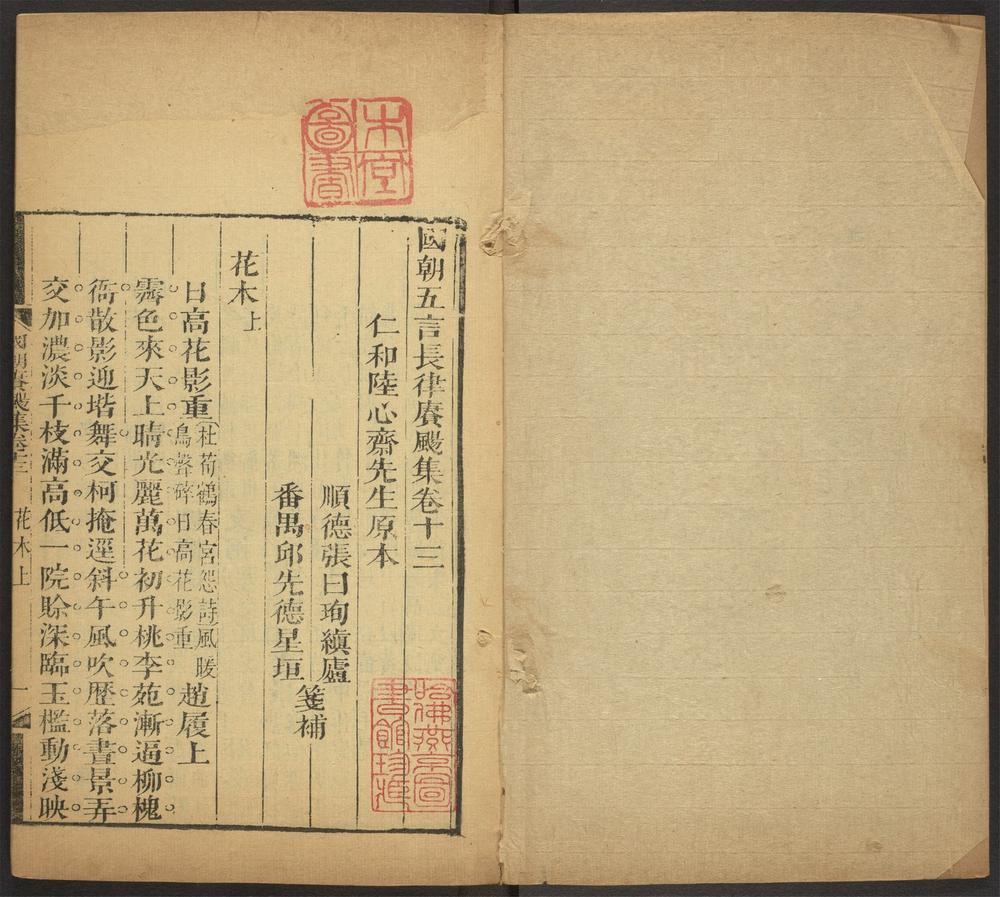 國朝五言長律賡颺集卷十三
仁和陸心齋先生原本
順德張曰珣縝廬
番禺邱先德星垣
箋補
花木上
日高花影重
杜荀鶴春宮怨詩風暖
鳥聲碎日高花影重
趙履上
霽色來天上晴光麗萬花初升桃李苑漸逼柳槐
衙散影迎堦舞交柯掩逕斜午風吹歷落晝景弄
交加濃淡千枝滿高低一院賒深臨玉檻動淺映
國朝賡颺集卷十三
花木上
一
圖書
哈佛燕京圖
書館珍藏